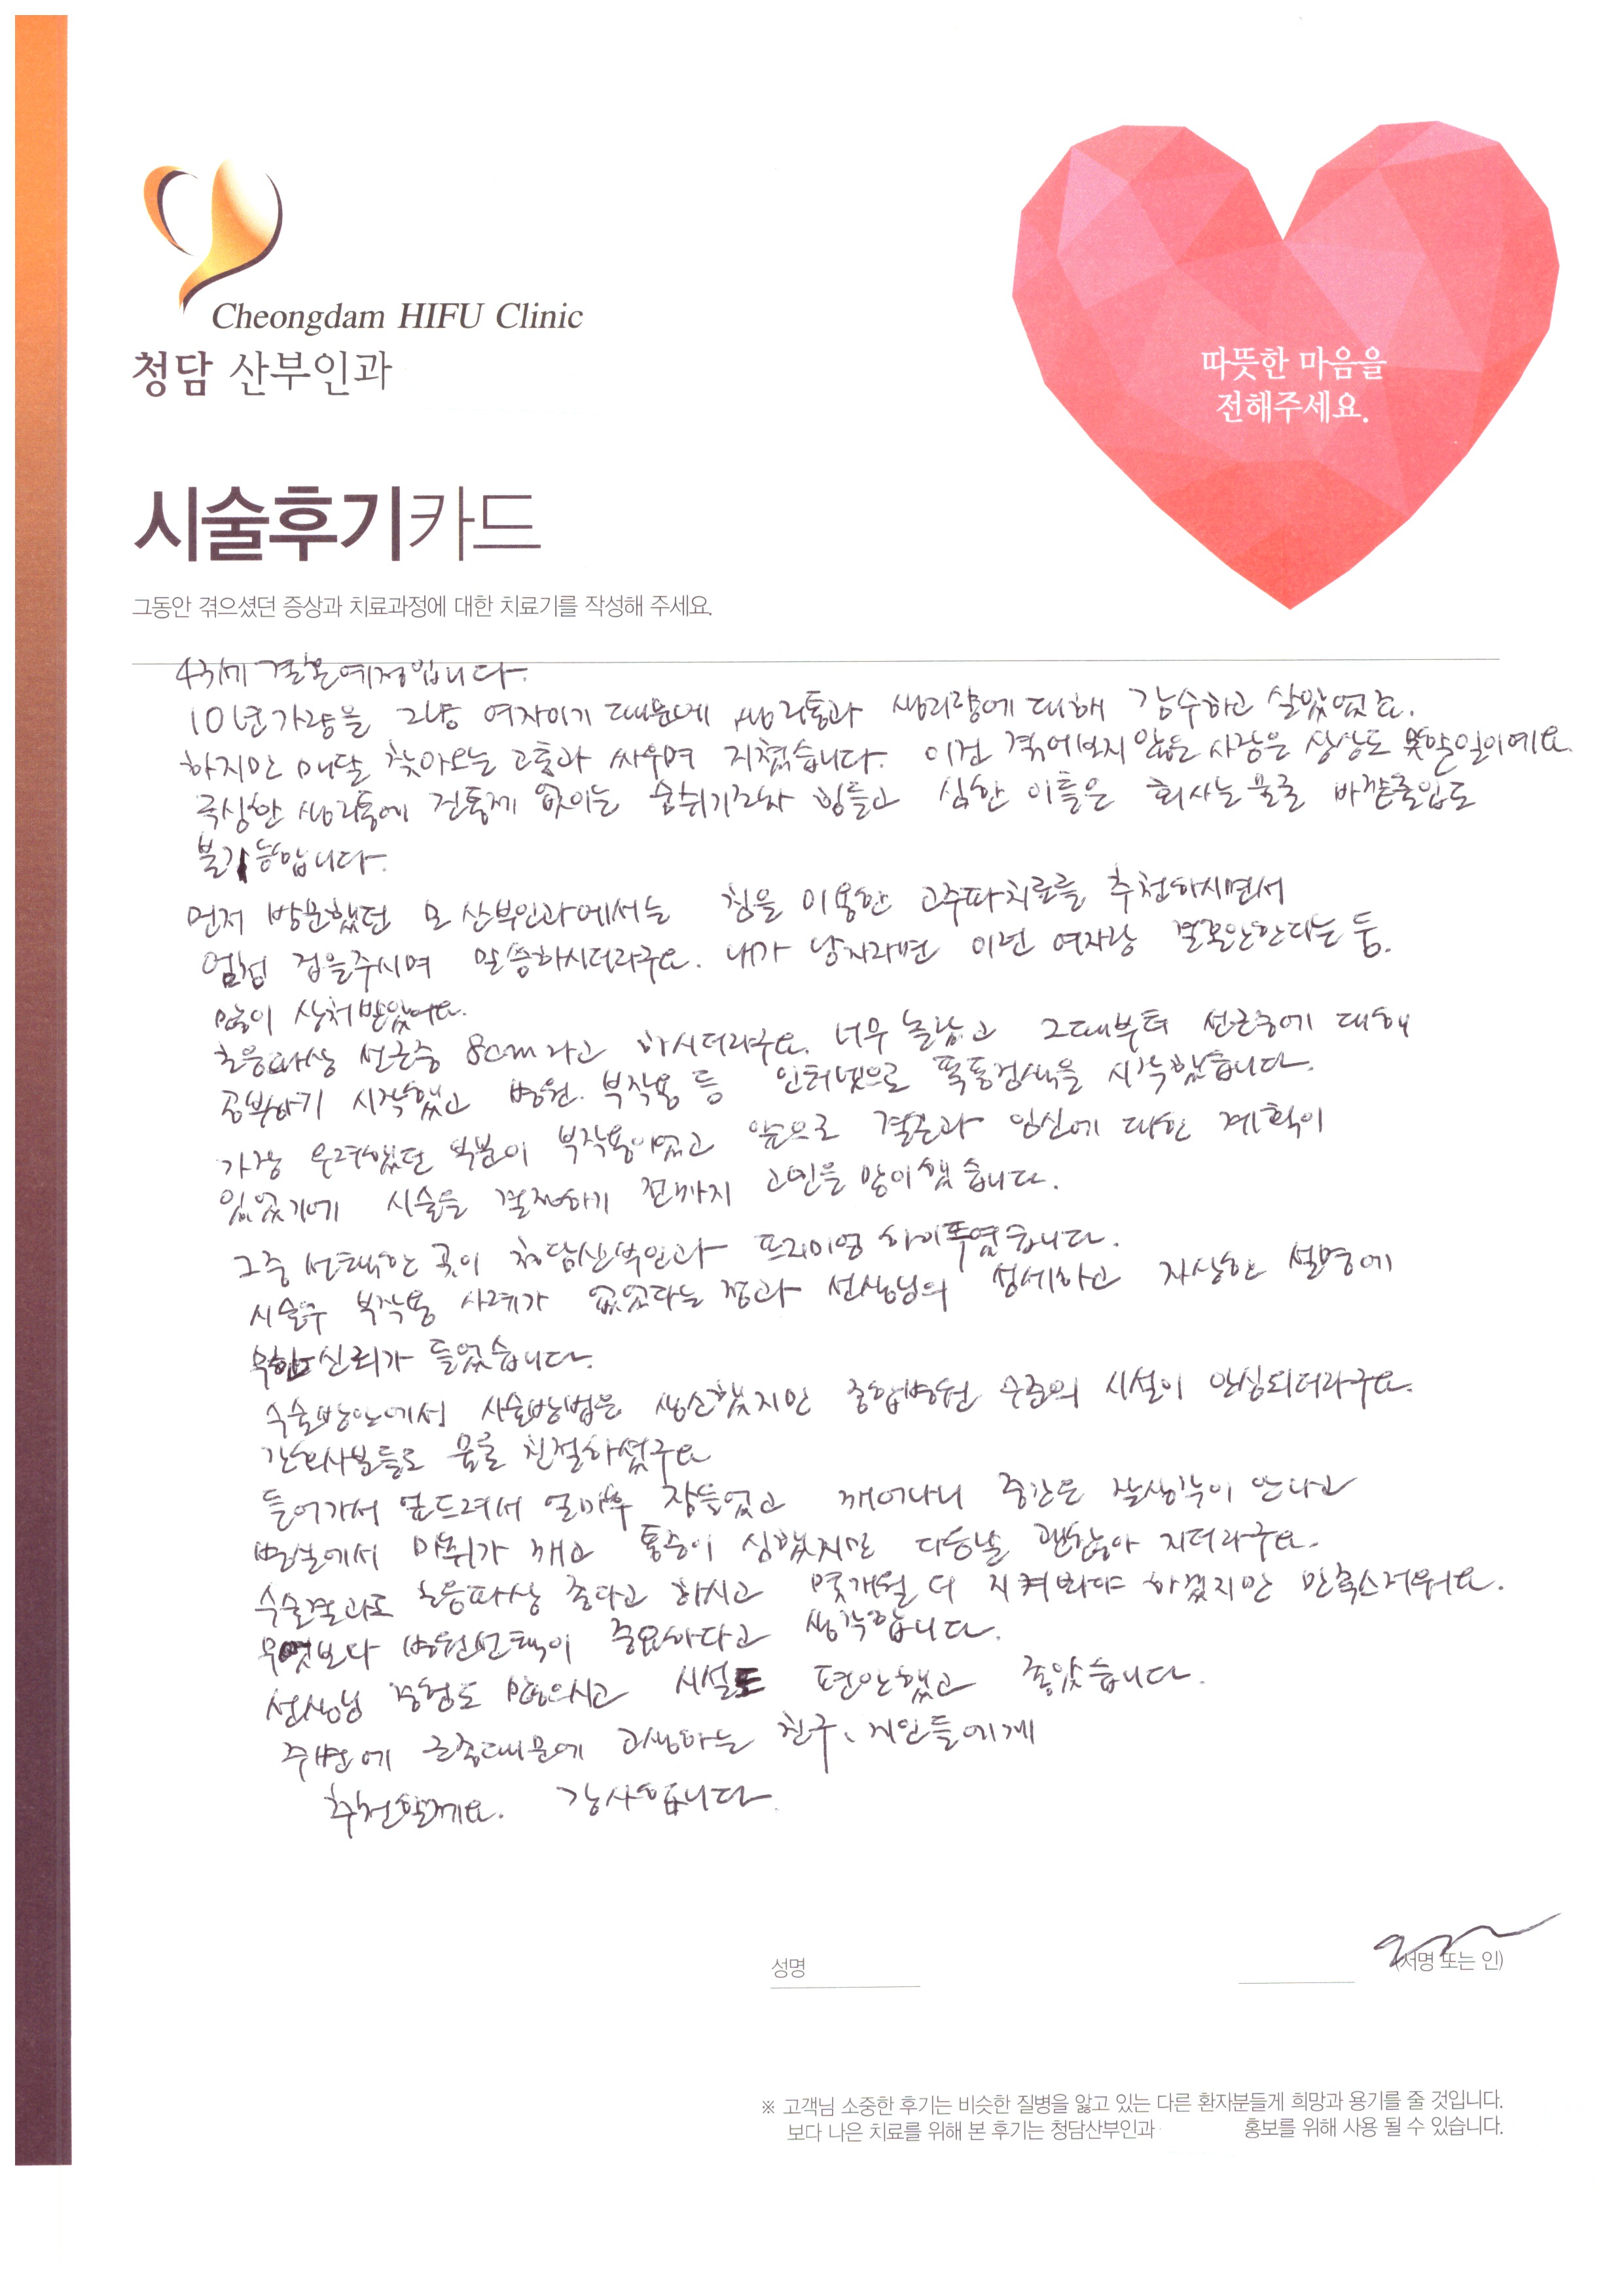 Cheongdam HIFU Clinic
청담 산부인과
따뜻한 마음을
전해주세요.
시술후기카드
그동안 겪으셨던 증상과 치료과정에 대한 치료기를 작성해 주세요.
43세 결혼예정입니다.
10년가량을 그냥 여자이기 때문에 생리통과 생리량에 대해 감수하고 살았었죠.
하지만 매달 찾아오는 고통과 싸우며 지쳤습니다. 이건 겪어보지 않은 사람은 상상도 못할일이에요.
극심한 생리통에 진통제 없이는 숨쉬기조차 힘들고 심한 이틀은 회사는 물론 바깥출입도
불가능합니다.
먼저 방문했던 모 산부인과에서는 침을 이용한 고주파치료를 추천하시면서
엄청 겁을주시며 말씀하시더라구요. 내가 남자라면 이런 여자랑 결혼안한다는 둥.
많이 상처받았어요.
초음파상 선근증 8cm라고 하시더라구요. 너무 놀랐고 그때부터 선근증에 대해
공부하기 시작했고 병원. 부작용 등 인터넷으로 폭풍검색을 시작했습니다.
가장 우려했던 부분이 부작용이었고 앞으로 결혼과 임신에 대한 계획이
있었기에 시술을 결정하기 전까지 고민을 많이 했습니다.
그중 선택한 곳이 청담산부인과 프리미엄 하이푸였습니다.
시술후 부작용 사례가 없었다는 점과 선생님의 섬세하고 자상한 설명에
무한 신뢰가 들었습니다.
수술방안에서 시술방법은 생소했지만 종합병원 수준의 시설이 안심되더라구요.
간호사분들도 물론 친절하셨구요
들어가서 엎드려서 얼마후 잠들었고 깨어나니 중간은 잘생각이 안나고
병실에서 마취가 깨고 통증이 심했지만 다음날 괜찮아 지더라구요.
수술결과도 초음파상 좋다고 하시고 몇개월 더 지켜봐야 하겠지만 만족스러워요.
무엇보다 병원선택이 중요하다고 생각합니다.
선생님 경험도 많으시고 시설도 편안했고 좋았습니다.
주변에 근종때문에 고생하는 친구, 지인들에게
추천할께요. 감사합니다.
성명
(서명 또는 인)
※ 고객님 소중한 후기는 비슷한 질병을 앓고 있는 다른 환자분들게 희망과 용기를 줄 것입니다.
보다 나은 치료를 위해 본 후기는 청담산부인과 홍보를 위해 사용 될 수 있습니다.